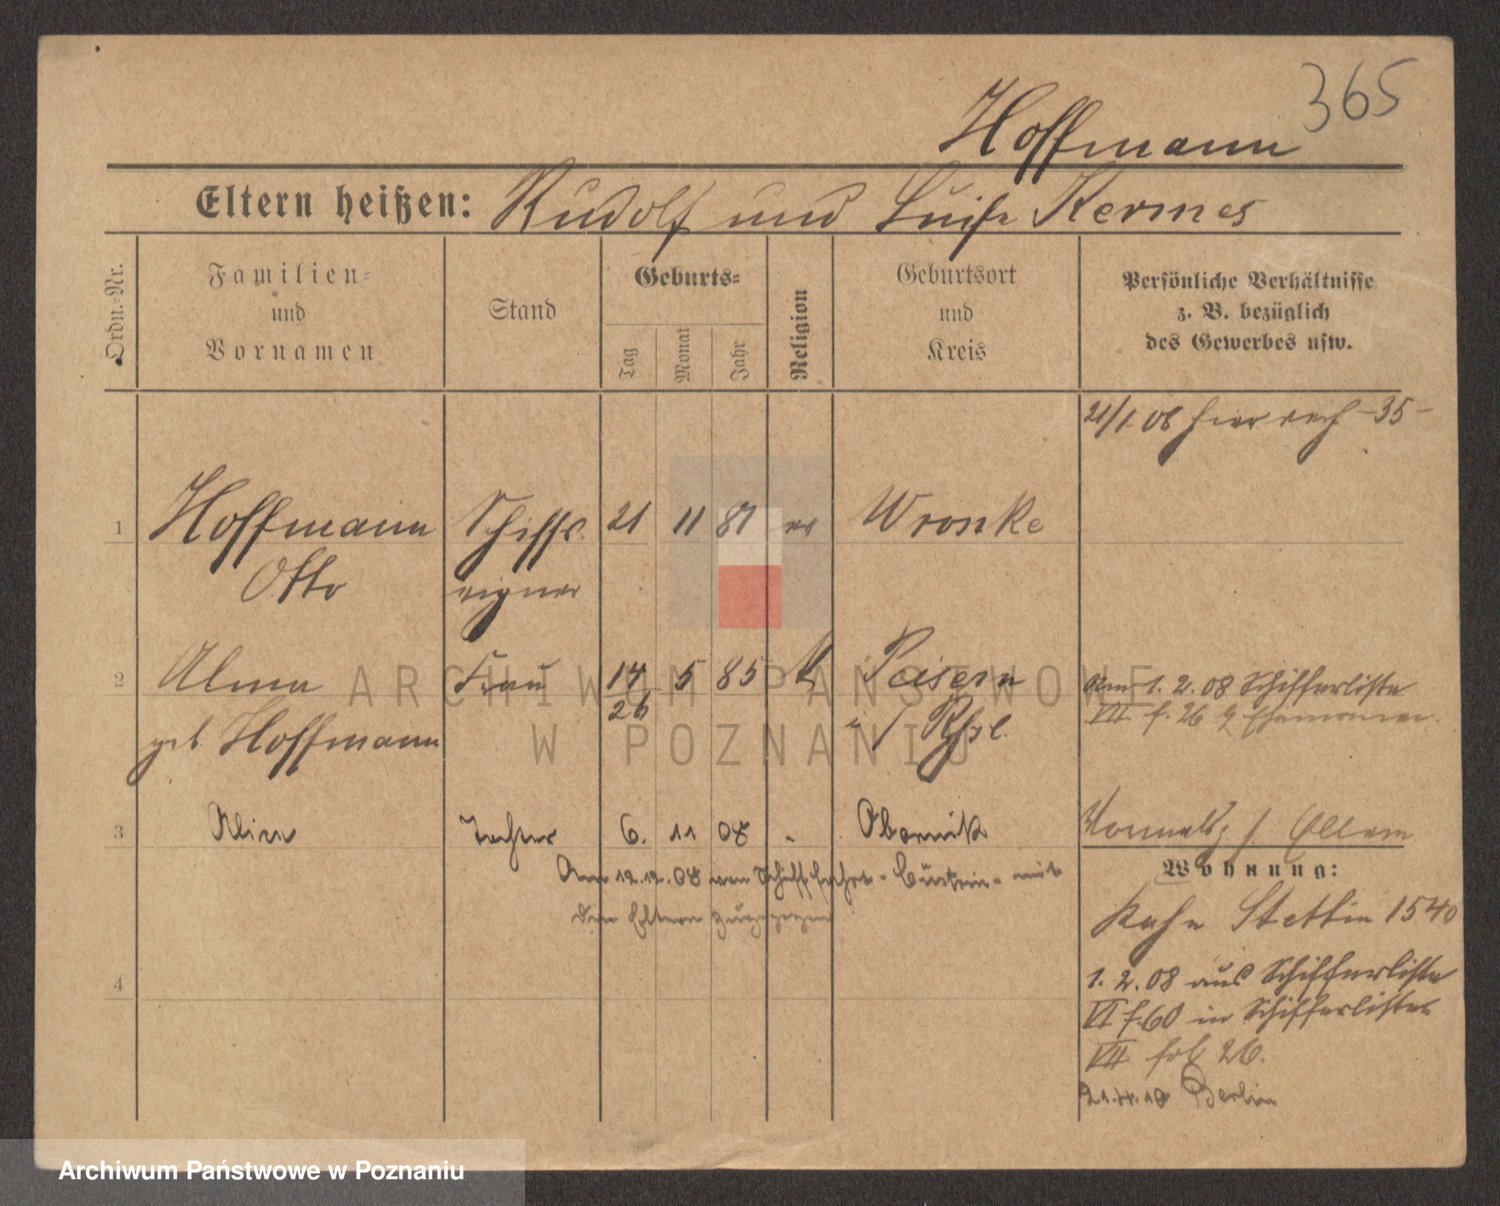 365
Hoffmann
Eltern heißen: Rudolf und Luise Kermes
Ordn.-Nr.
Familien-
und
Vornamen
Stand
Geburts-
Tag
Monat
Jahr
Religion
Geburtsort
und
Kreis
Persönliche Verhältnisse
z. B. bezüglich
des Gewerbes usw.
21/1. 08 hier -35-
1 Hoffmann Schiffs- 21 11 81 ev Wronke
Otto eigner
2 Alma Frau 14 5 85 k Peisern
26
geb. Hoffmann i/
Am 1. 2. 08 Schifferliste
VII f. 26 z Ehemann
3 Tochter 6. 11 08 " Obornik
Am 12.12.08 von Schifffahrt - Cüstrin - mit
den Eltern zugezogen
Wohnung:
Kahn Stettin 1540
1. 2. 08 aus Schifferliste
VI f. 60 in Schifferliste
VII fol 26.
Berlin
4
ARCHIWUM PAŃSTWOWE
W POZNANIU
Archiwum Państwowe w Poznaniu